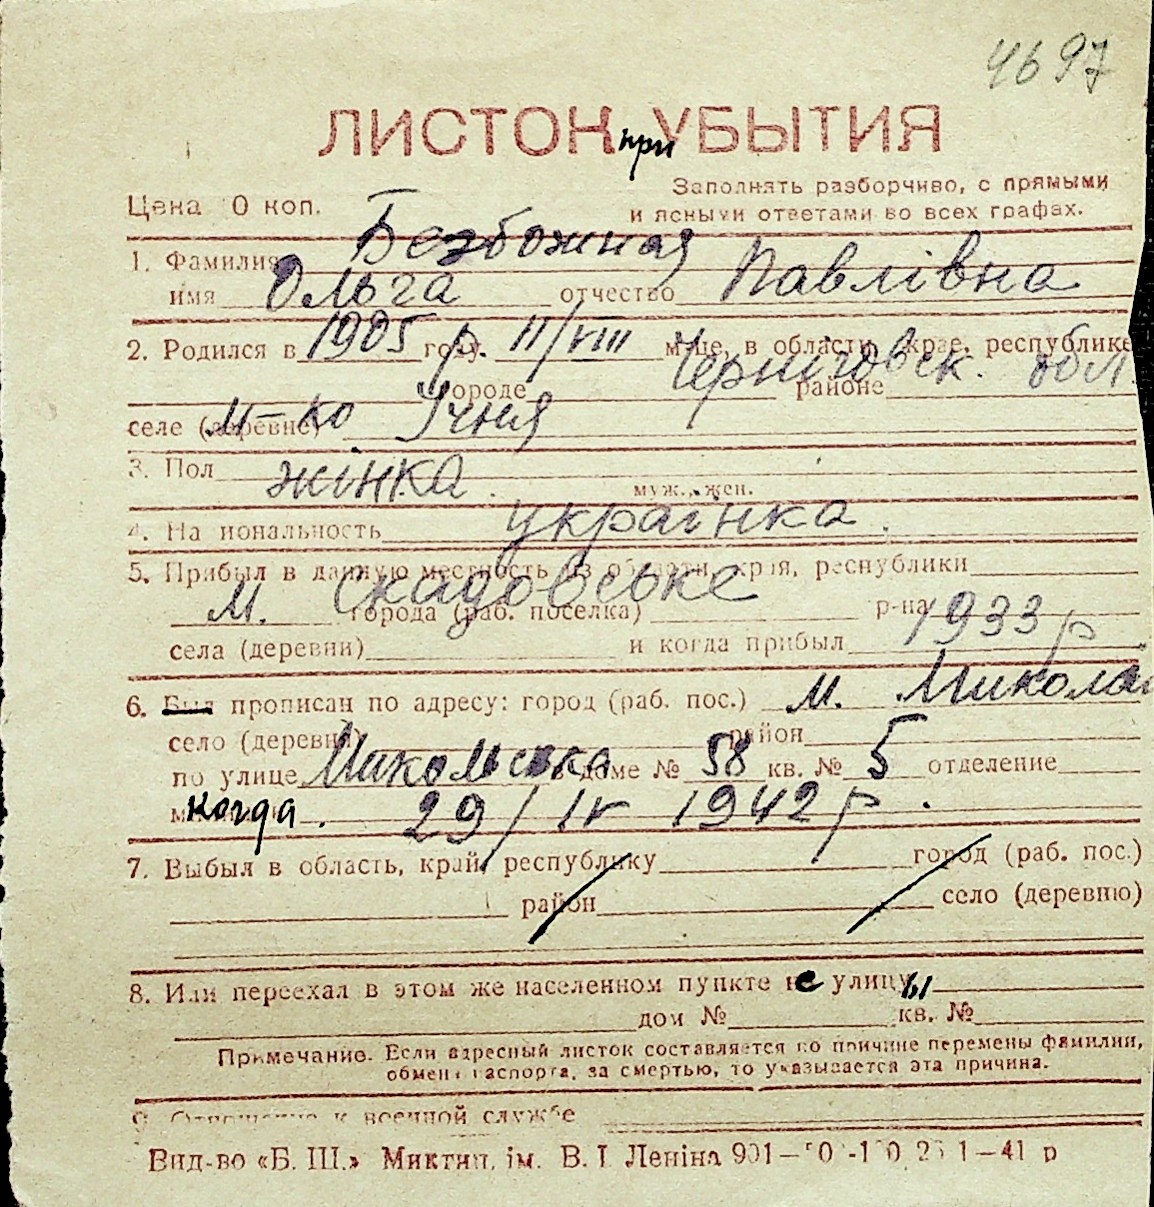 4697
ЛИСТОК при УБЫТИЯ
Цена 0 коп.
Заполнять разборчиво, с прямыми
и ясными ответами во всех графах.
1. Фамилия Безбожная
имя Ольга отчество Павлівна
2. Родился в 1905 р. году II/VIII м-це, в области, крае, республике
Черніговск. обл. городе районе
селе (деревне) м-ко Ічня
3. Пол жінка. муж., жен.
4. Национальность українка.
5. Прибыл в данную местность из области, края, республики
м. Скадовське города (раб. поселка) р-на
села (деревни) и когда прибыл 1933 р
6. Был прописан по адресу: город (раб. пос.) м. Микола
село (деревня) район
по улице Микольська в доме № 58 кв. № 5 отделение
когда. 29/IV 1942 р.
7. Выбыл в область, край, республику город (раб. пос.)
район село (деревню)
8. Или переехал в этом же населенном пункте не улицы
дом № кв. №
Примечание. Если адресный листок составляется по причине перемены фамилии,
обмена паспорта, за смертью, то указывается эта причина.
9. Отношение к военной службе
Вид-во «Б. Ш.» Миктип. ім. В. І. Леніна 41 р